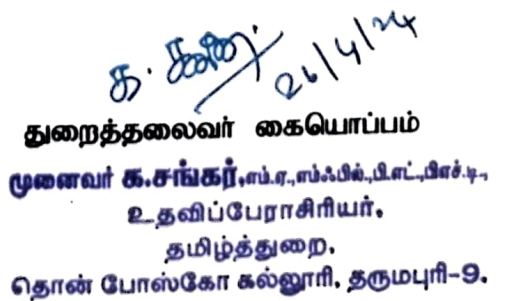 க. 26/4/24
துறைத்தலைவர் கையொப்பம்
முனைவர் க.சங்கர்,எம்.ஏ.,எம்ஃபில்.,பி.எட்.,பிஎச்.டி.,
உதவிப்பேராசிரியர்,
தமிழ்த்துறை,
தொன் போஸ்கோ கல்லூரி, தருமபுரி-9.